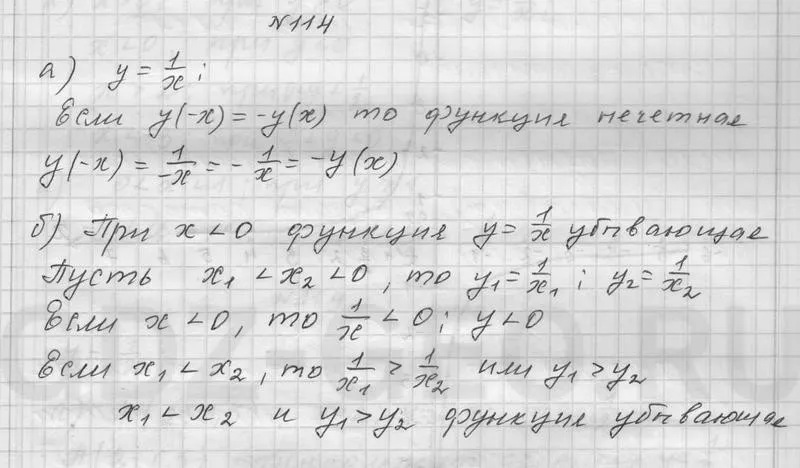 №114
а) y = 1/x ;
Если y(-x) = -y(x) то функция нечетная
y(-x) = 1/-x = - 1/x = -y(x)
б) При x < 0 функция y = 1/x убывающая
Пусть x₁ < x₂ < 0, то y₁ = 1/x₁ ; y₂ = 1/x₂
Если x < 0, то 1/x < 0; y < 0
Если x₁ < x₂, то 1/x₁ > 1/x₂ или y₁ > y₂
x₁ < x₂ и y₁ > y₂ функция убывающая